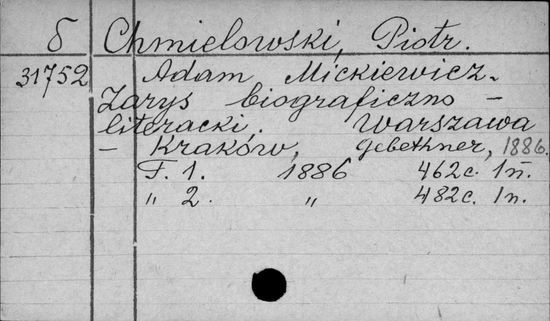 б Chmielowski, Piotr.
31752 Adam Mickiewicz.
Zarys biograficzno -
literacki. Warszawa
- Kraków, Gebethner, 1886.
T. 1. 1886 462c. 1п.
„ 2. „ 482c. 1п.